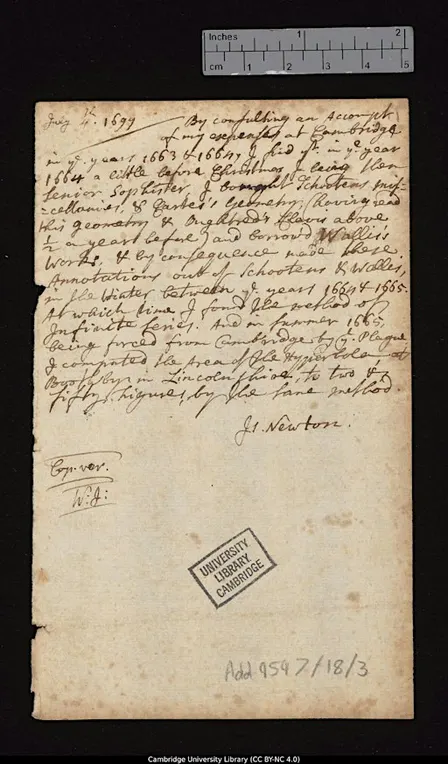 Inches 1 2
cm 1 2 3 4 5
July 4th. 1699
By consulting an Accompt
of my expenses at Cambridge
in ye. years 1663 & 1664, I find yt. in ye. year
1664 a little before Christmas I being then
Senior Sophister, I bought Schooten's Mis-
=cellanies, & Cartes's Geometry, (having read
this Geometry & Oughtred's Clavis above
½ a year before) and borrow'd Wallis's
Works, & by consequence made these
Annotations out of Schooten & Wallis,
in the Winter between ye. years 1664 & 1665.
At which time, I found the method of
Infinite series. And in summer 1665,
being forced from Cambridge by ye. Plague
I computed the Area of the Hyperbola at
Boothby, in Lincolnshire, to two &
fifty figures, by the same method.
Is. Newton.
Cop. ver.
W: J:
UNIVERSITY
LIBRARY
CAMBRIDGE
Add 9597/18/3
Cambridge University Library (CC BY-NC 4.0)